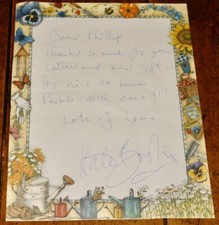 Dear Phillip,
Thanks so much for your
Letter and
It's nice to know
People still care!!
Lots of Love